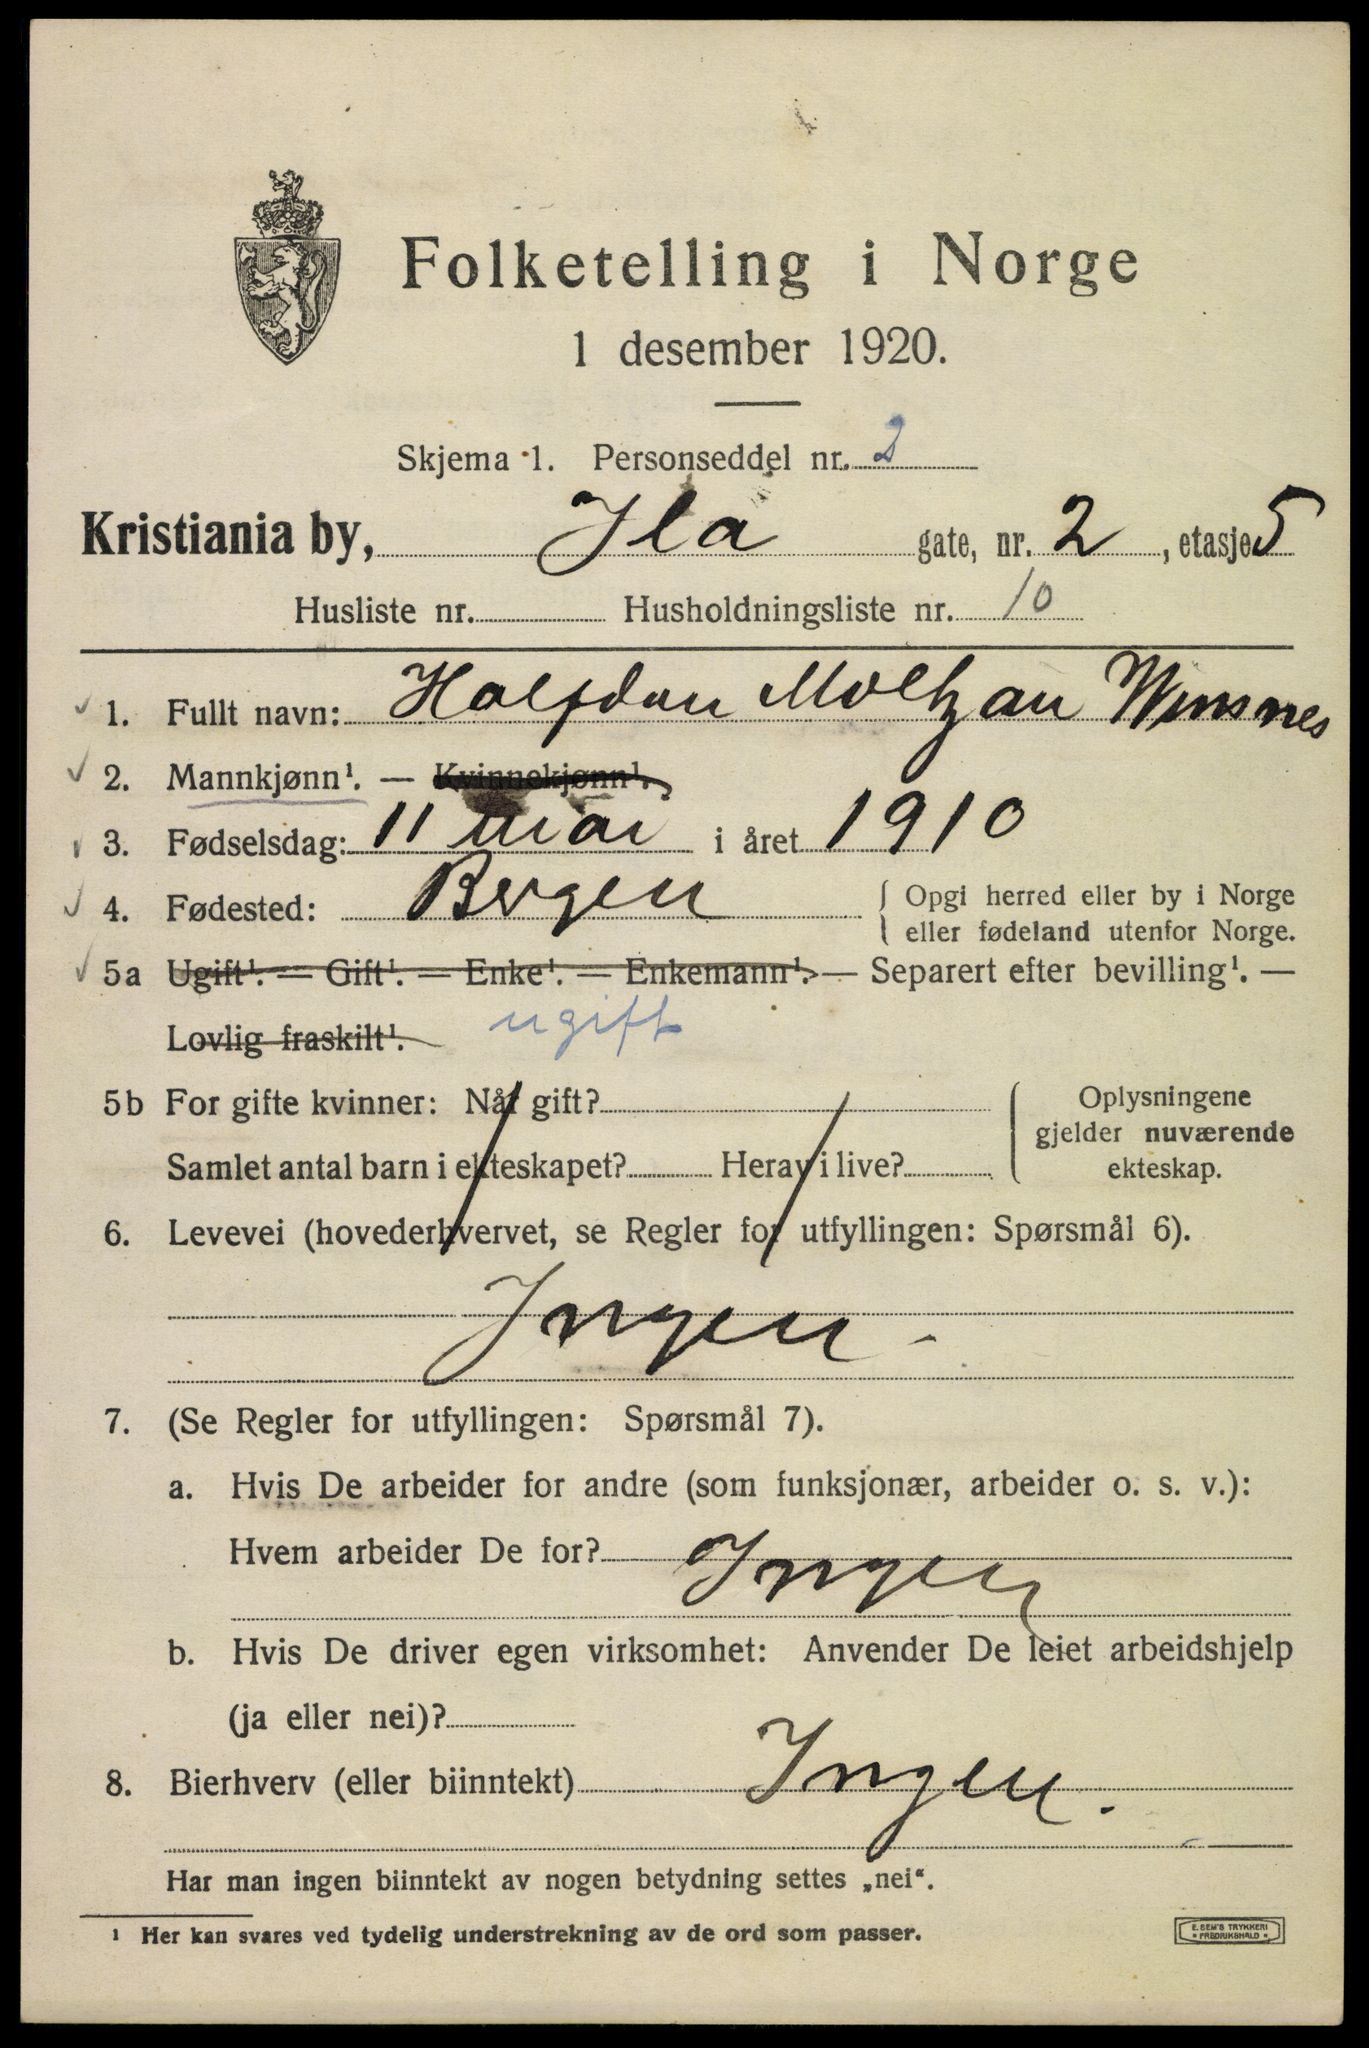 Folketelling i Norge
1 desember 1920.
Skjema 1. Personseddel nr. 2
Kristiania by, Ila gate, nr. 2, etasje 5
Husliste nr. Husholdningsliste nr. 10
1. Fullt navn: Halfdan Moltzau Winsnes
2. Mannkjønn¹. — Kvinnekjønn¹.
3. Fødselsdag: 11 mai i året 1910
4. Fødested: Bergen { Opgi herred eller by i Norge
eller fødeland utenfor Norge.
5a Ugift¹. — Gift¹. — Enke¹. — Enkemann¹. — Separert efter bevilling¹. —
Lovlig fraskilt¹. ugift
5b For gifte kvinner: Når gift?
Samlet antal barn i ekteskapet? Herav i live?
Oplysningene
gjelder nuværende
ekteskap.
6. Levevei (hovederhvervet, se Regler for utfyllingen: Spørsmål 6).
Ingen.
7. (Se Regler for utfyllingen: Spørsmål 7).
a. Hvis De arbeider for andre (som funksjonær, arbeider o. s. v.):
Hvem arbeider De for? Ingen
b. Hvis De driver egen virksomhet: Anvender De leiet arbeidshjelp
(ja eller nei)?
8. Bierhverv (eller biinntekt) Ingen.
Har man ingen biinntekt av nogen betydning settes „nei“.
¹ Her kan svares ved tydelig understrekning av de ord som passer.
E. SEM'S TRYKKERI
* FREDRIKSHALD *